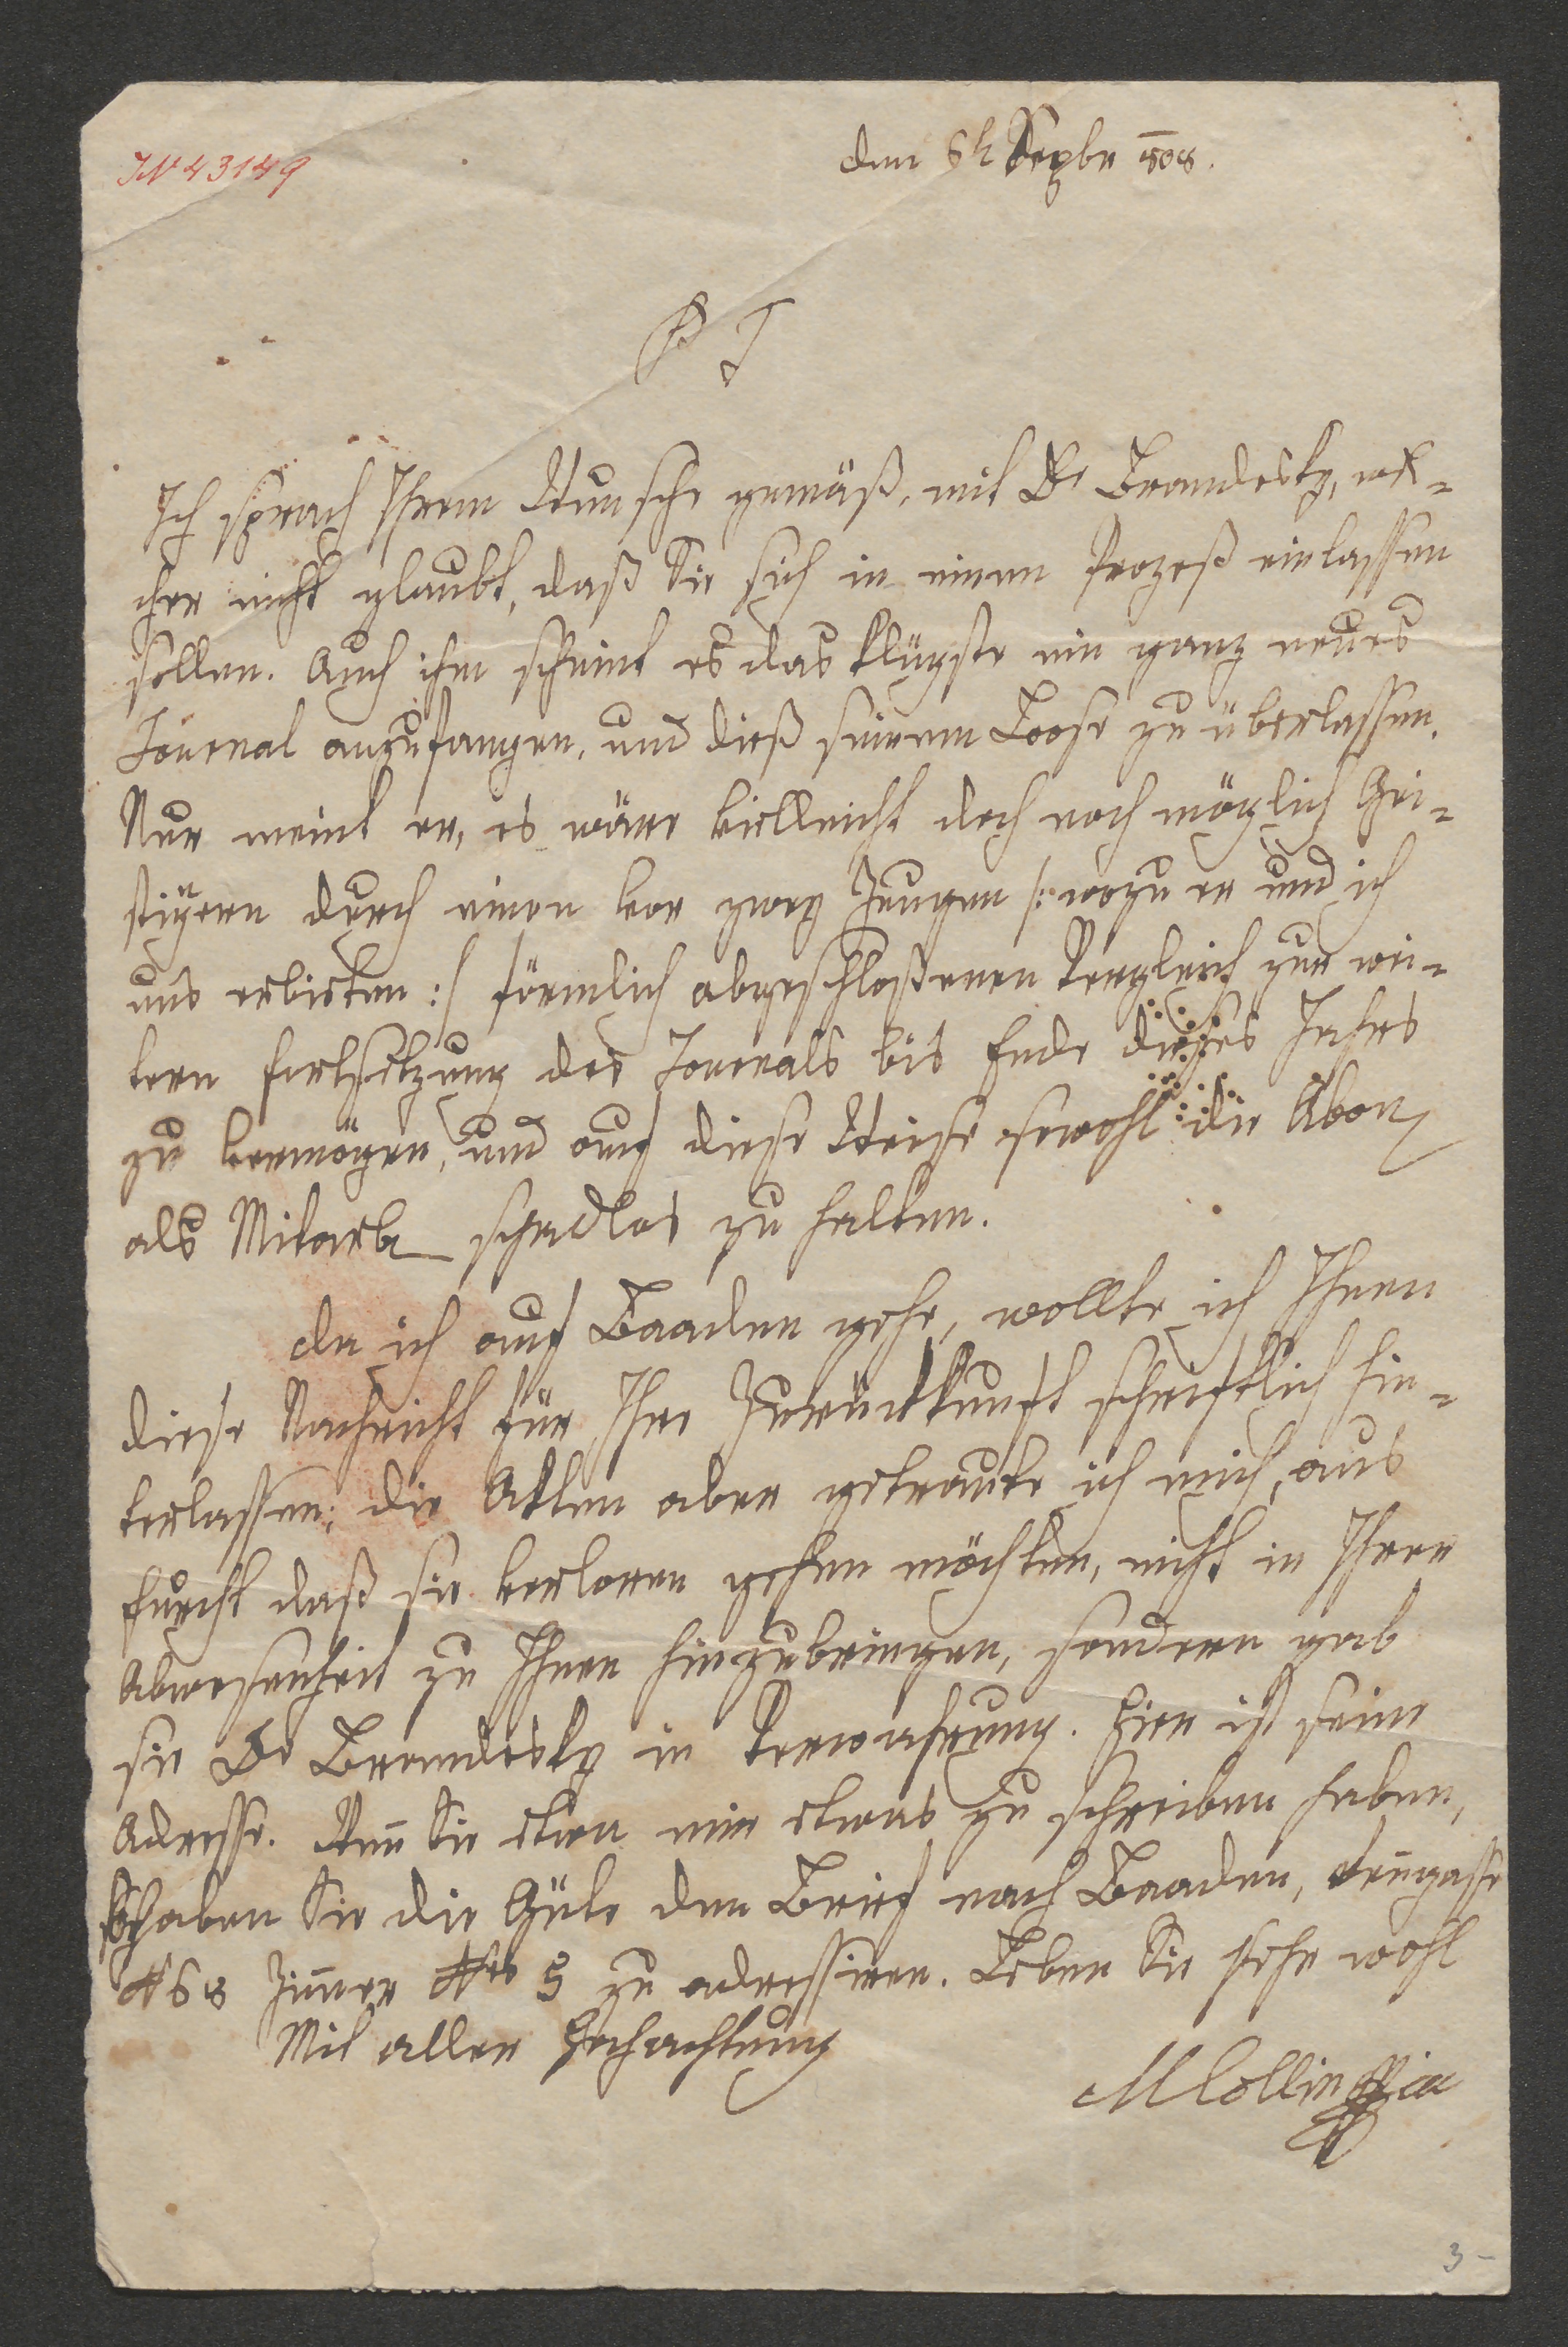 IN 43149
den 6t Septbr 808.
P T
Ich sprach Ihrem Wunsche gemäß, mit Dr Brandesky, wel-
cher nicht glaubt, daß Sie sich in einen Prozeß einlassen
sollen. Auch ihm scheint es das klügste ein ganz neues
Journal anzufangen, und dieß seinem Loose zu überlassen.
Nur meint er, es wäre vielleicht doch noch möglich Gei-
stigern durch einen vor zwey Zeugen /: wozu er und ich
uns erbieten :/ förmlich abgeschloßenen Vergleich zur wei-
tern Fortsetzung des Journals bis Ende dieses Jahres
zu vermögen, und auf diese Weise sowohl die Abon
als Mitarb schadlos zu halten.
Da ich auf Baaden gehe, wollte ich Ihnen
diese Nachricht für Ihre Zurückkunft schriftlich hin-
terlassen; die Akten aber getraute ich mich, aus
Furcht daß sie verloren gehen möchten, nicht in Ihrer
Abwesenheit zu Ihnen hinzubringen, sondern gab
sie Dr Brandesky in Verwahrung. Hier ist seine
Adresse. Wenn Sie etwa mir etwas zu schreiben haben,
haben Sie die Güte den Brief nach Baaden,
N 68 Zimmer Nro 5 zu adressiren. Leben Sie sehr wohl
Mit aller Hochachtung
MCollin
3-